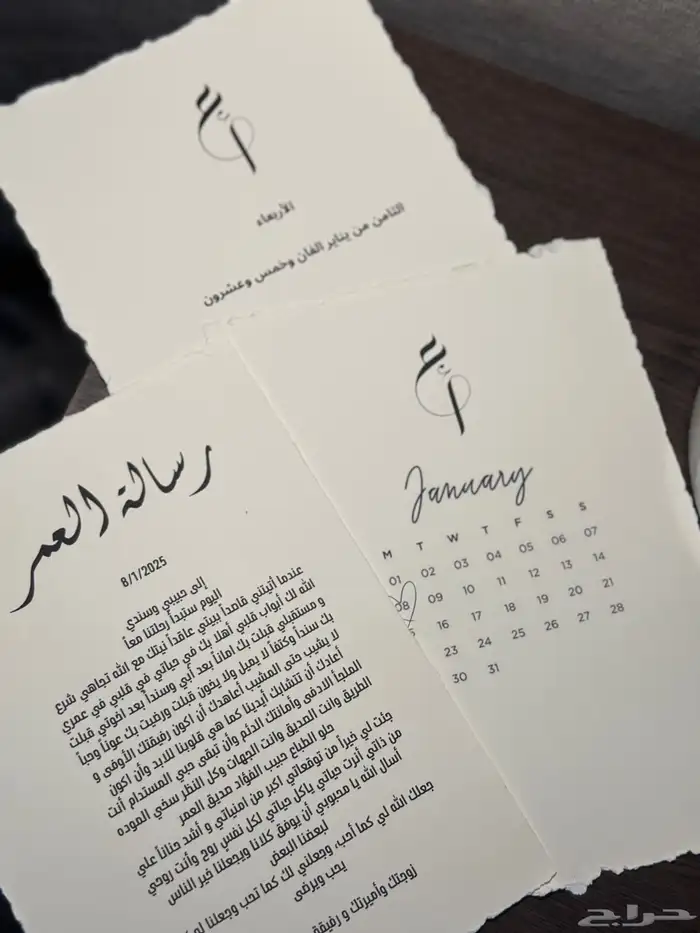 الأربعاء
الثامن من يناير الفان وخمس وعشرون
January
M T W T F S S
01 02 03 04 05 06 07
08 09 10 11 12 13 14
16 17 18 19 20 21
23 24 25 26 27 28
30 31
رسالة العمر
8/1/2025
إلى حبيبي وسندي
اليوم ستبدأ رحلتنا معاً
عندما أتيتني قاصداً بيتي عاقداً نيتك مع الله تجاهي شرع
الله لك أبواب قلبي أهلا بك في حياتي في قلبي في عمري
و مستقبلي قبلت بك اماناً بعد أبي وسنداً بعد اخوتي قبلت
بك سنداً وكتفاً لا يميل ولا يخون قبلت ورضيت بك عوناً وحباً
لا يشيب حتى المشيب أعاهدك أن اكون رفيقتك الأوفى و
أعادك أن تتشابك أيدينا كما هي قلوبنا للابد وأن اكون
الملجأ الادفى وأمانتك الدئم وأن تبقى حبي المستدام أنت
الطريق وانت الصديق وانت الجهات وكل النظر سخي الموده
حلو الطباع حبيب الفؤاد صديق العمر
جئت لي خيراً من توقعاتي اكبر من امنياتي و أشد حناناً علي
من ذاتي أنرت حياتي ياكل حياتي لكل نفسٍ روح وأنت روحي
أسأل الله يا محبوبي أن يوفق كلانا ويجعلنا خير الناس
لبعضنا البعض
جعلك الله لي كما أحب، وجعلني لك كما تحب وجعلنا
يحب ويرضى
زوجتك وأميرتك و رفيقة
حراج